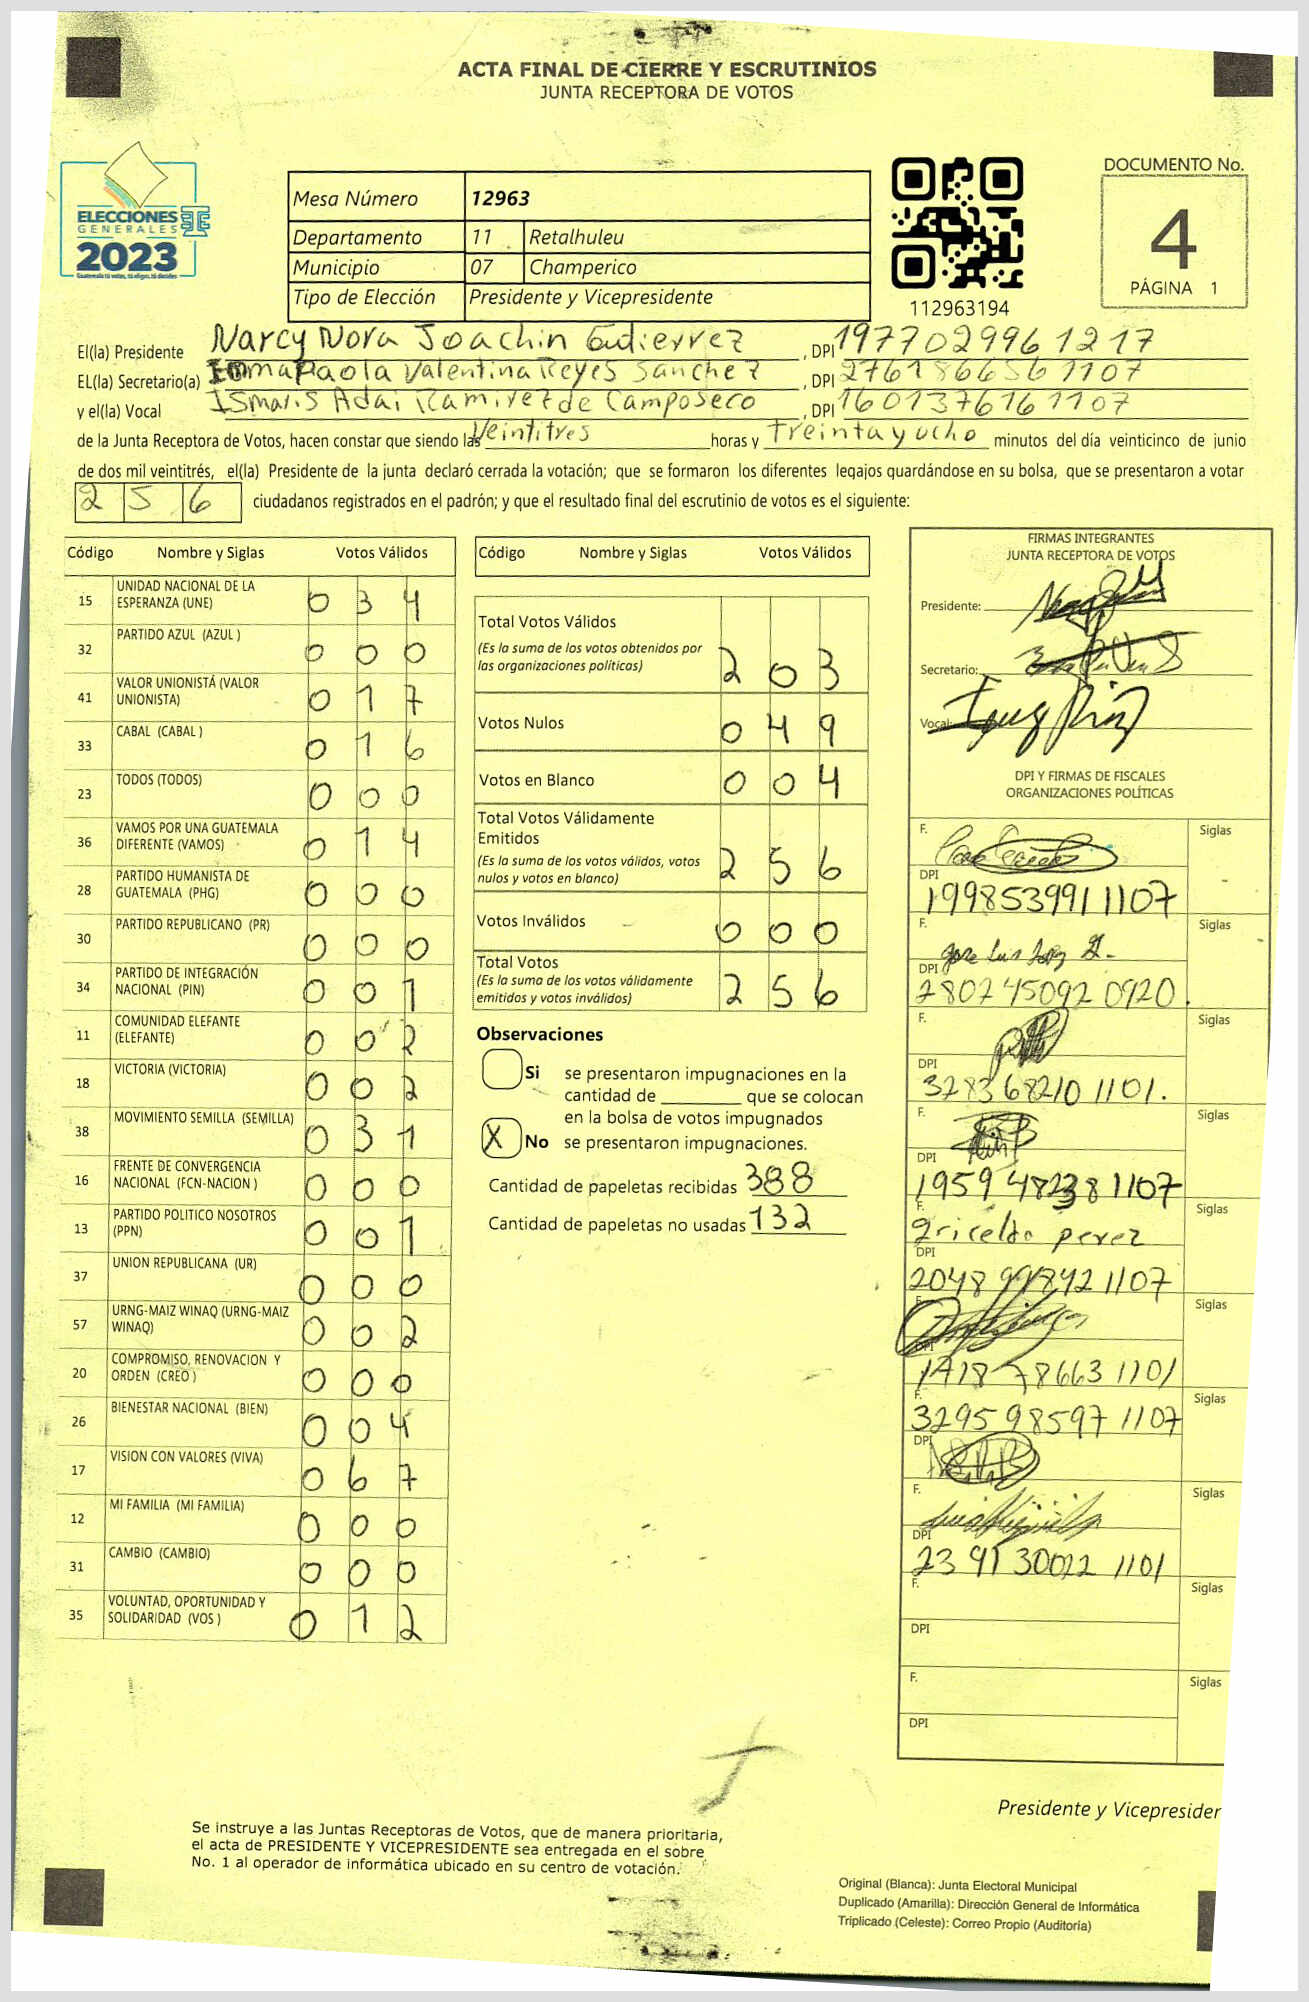 ACTA FINAL DE CIERRE Y ESCRUTINIOS
JUNTA RECEPTORA DE VOTOS
ELECCIONES
GENERALES
2023
Mesa Número 12963
Departamento 11 Retalhuleu
Municipio 07 Champerico
Tipo de Elección Presidente y Vicepresidente
112963194
DOCUMENTO No.
4
PÁGINA 1
El(la) Presidente Narcy Nora Joachin Gutierrez, DPI 1977029961217
EL(la) Secretario(a) Paola Valentina Reyes Sanchez, DPI 2761866561107
y el(la) Vocal Ismaris Adai Ramirez de Camposeco, DPI 1601376161107
de la Junta Receptora de Votos, hacen constar que siendo las Veintitres horas y Treinta y ocho minutos del día veinticinco de junio
de dos mil veintitrés, el(la) Presidente de la junta declaró cerrada la votación; que se formaron los diferentes legajos quardándose en su bolsa, que se presentaron a votar
256 ciudadanos registrados en el padrón; y que el resultado final del escrutinio de votos es el siguiente:
Código Nombre y Siglas Votos Válidos
15 UNIDAD NACIONAL DE LA ESPERANZA (UNE) 034
32 PARTIDO AZUL (AZUL ) 000
41 VALOR UNIONISTA (VALOR UNIONISTA) 017
33 CABAL (CABAL ) 016
23 TODOS (TODOS) 000
36 VAMOS POR UNA GUATEMALA DIFERENTE (VAMOS) 014
28 PARTIDO HUMANISTA DE GUATEMALA (PHG) 000
30 PARTIDO REPUBLICANO (PR) 000
34 PARTIDO DE INTEGRACIÓN NACIONAL (PIN) 001
11 COMUNIDAD ELEFANTE (ELEFANTE) 002
18 VICTORIA (VICTORIA) 002
38 MOVIMIENTO SEMILLA (SEMILLA) 031
16 FRENTE DE CONVERGENCIA NACIONAL (FCN-NACION ) 000
13 PARTIDO POLITICO NOSOTROS (PPN) 001
37 UNION REPUBLICANA (UR) 000
57 URNG-MAIZ WINAQ (URNG-MAIZ WINAQ) 002
20 COMPROMISO, RENOVACION Y ORDEN (CREO ) 000
26 BIENESTAR NACIONAL (BIEN) 004
17 VISION CON VALORES (VIVA) 067
12 MI FAMILIA (MI FAMILIA) 000
31 CAMBIO (CAMBIO) 000
35 VOLUNTAD, OPORTUNIDAD Y SOLIDARIDAD (VOS ) 012
Código Nombre y Siglas Votos Válidos
Total Votos Válidos 203
(Es la suma de los votos obtenidos por
las organizaciones políticas)
Votos Nulos 049
Votos en Blanco 004
Total Votos Válidamente
Emitidos 256
(Es la suma de los votos válidos, votos
nulos y votos en blanco)
Votos Inválidos 000
Total Votos 256
(Es la suma de los votos válidamente
emitidos y votos inválidos)
Observaciones
Si se presentaron impugnaciones en la
cantidad de ________ que se colocan
en la bolsa de votos impugnados
X No se presentaron impugnaciones.
Cantidad de papeletas recibidas 388
Cantidad de papeletas no usadas 132
FIRMAS INTEGRANTES
JUNTA RECEPTORA DE VOTOS
Presidente:
Secretario:
Vocal:
DPI Y FIRMAS DE FISCALES
ORGANIZACIONES POLÍTICAS
F. Siglas
DPI 1998539911107
F. Jose Luis Siglas
DPI 2807450920920.
F. Siglas
DPI 3283682101101.
F. Siglas
DPI 1959
F. Griceldo perez Siglas
DPI 2048998421107
F. Siglas
DPI 1101
F. 3295985971107 Siglas
DPI
F. Siglas
DPI 2391300221101
F. Siglas
DPI
F. Siglas
DPI
Presidente y Vicepresider
Se instruye a las Juntas Receptoras de Votos, que de manera prioritaria,
el acta de PRESIDENTE Y VICEPRESIDENTE sea entregada en el sobre
No. 1 al operador de informática ubicado en su centro de votación.
Original (Blanca): Junta Electoral Municipal
Duplicado (Amarilla): Dirección General de Informática
Triplicado (Celeste): Correo Propio (Auditoría)